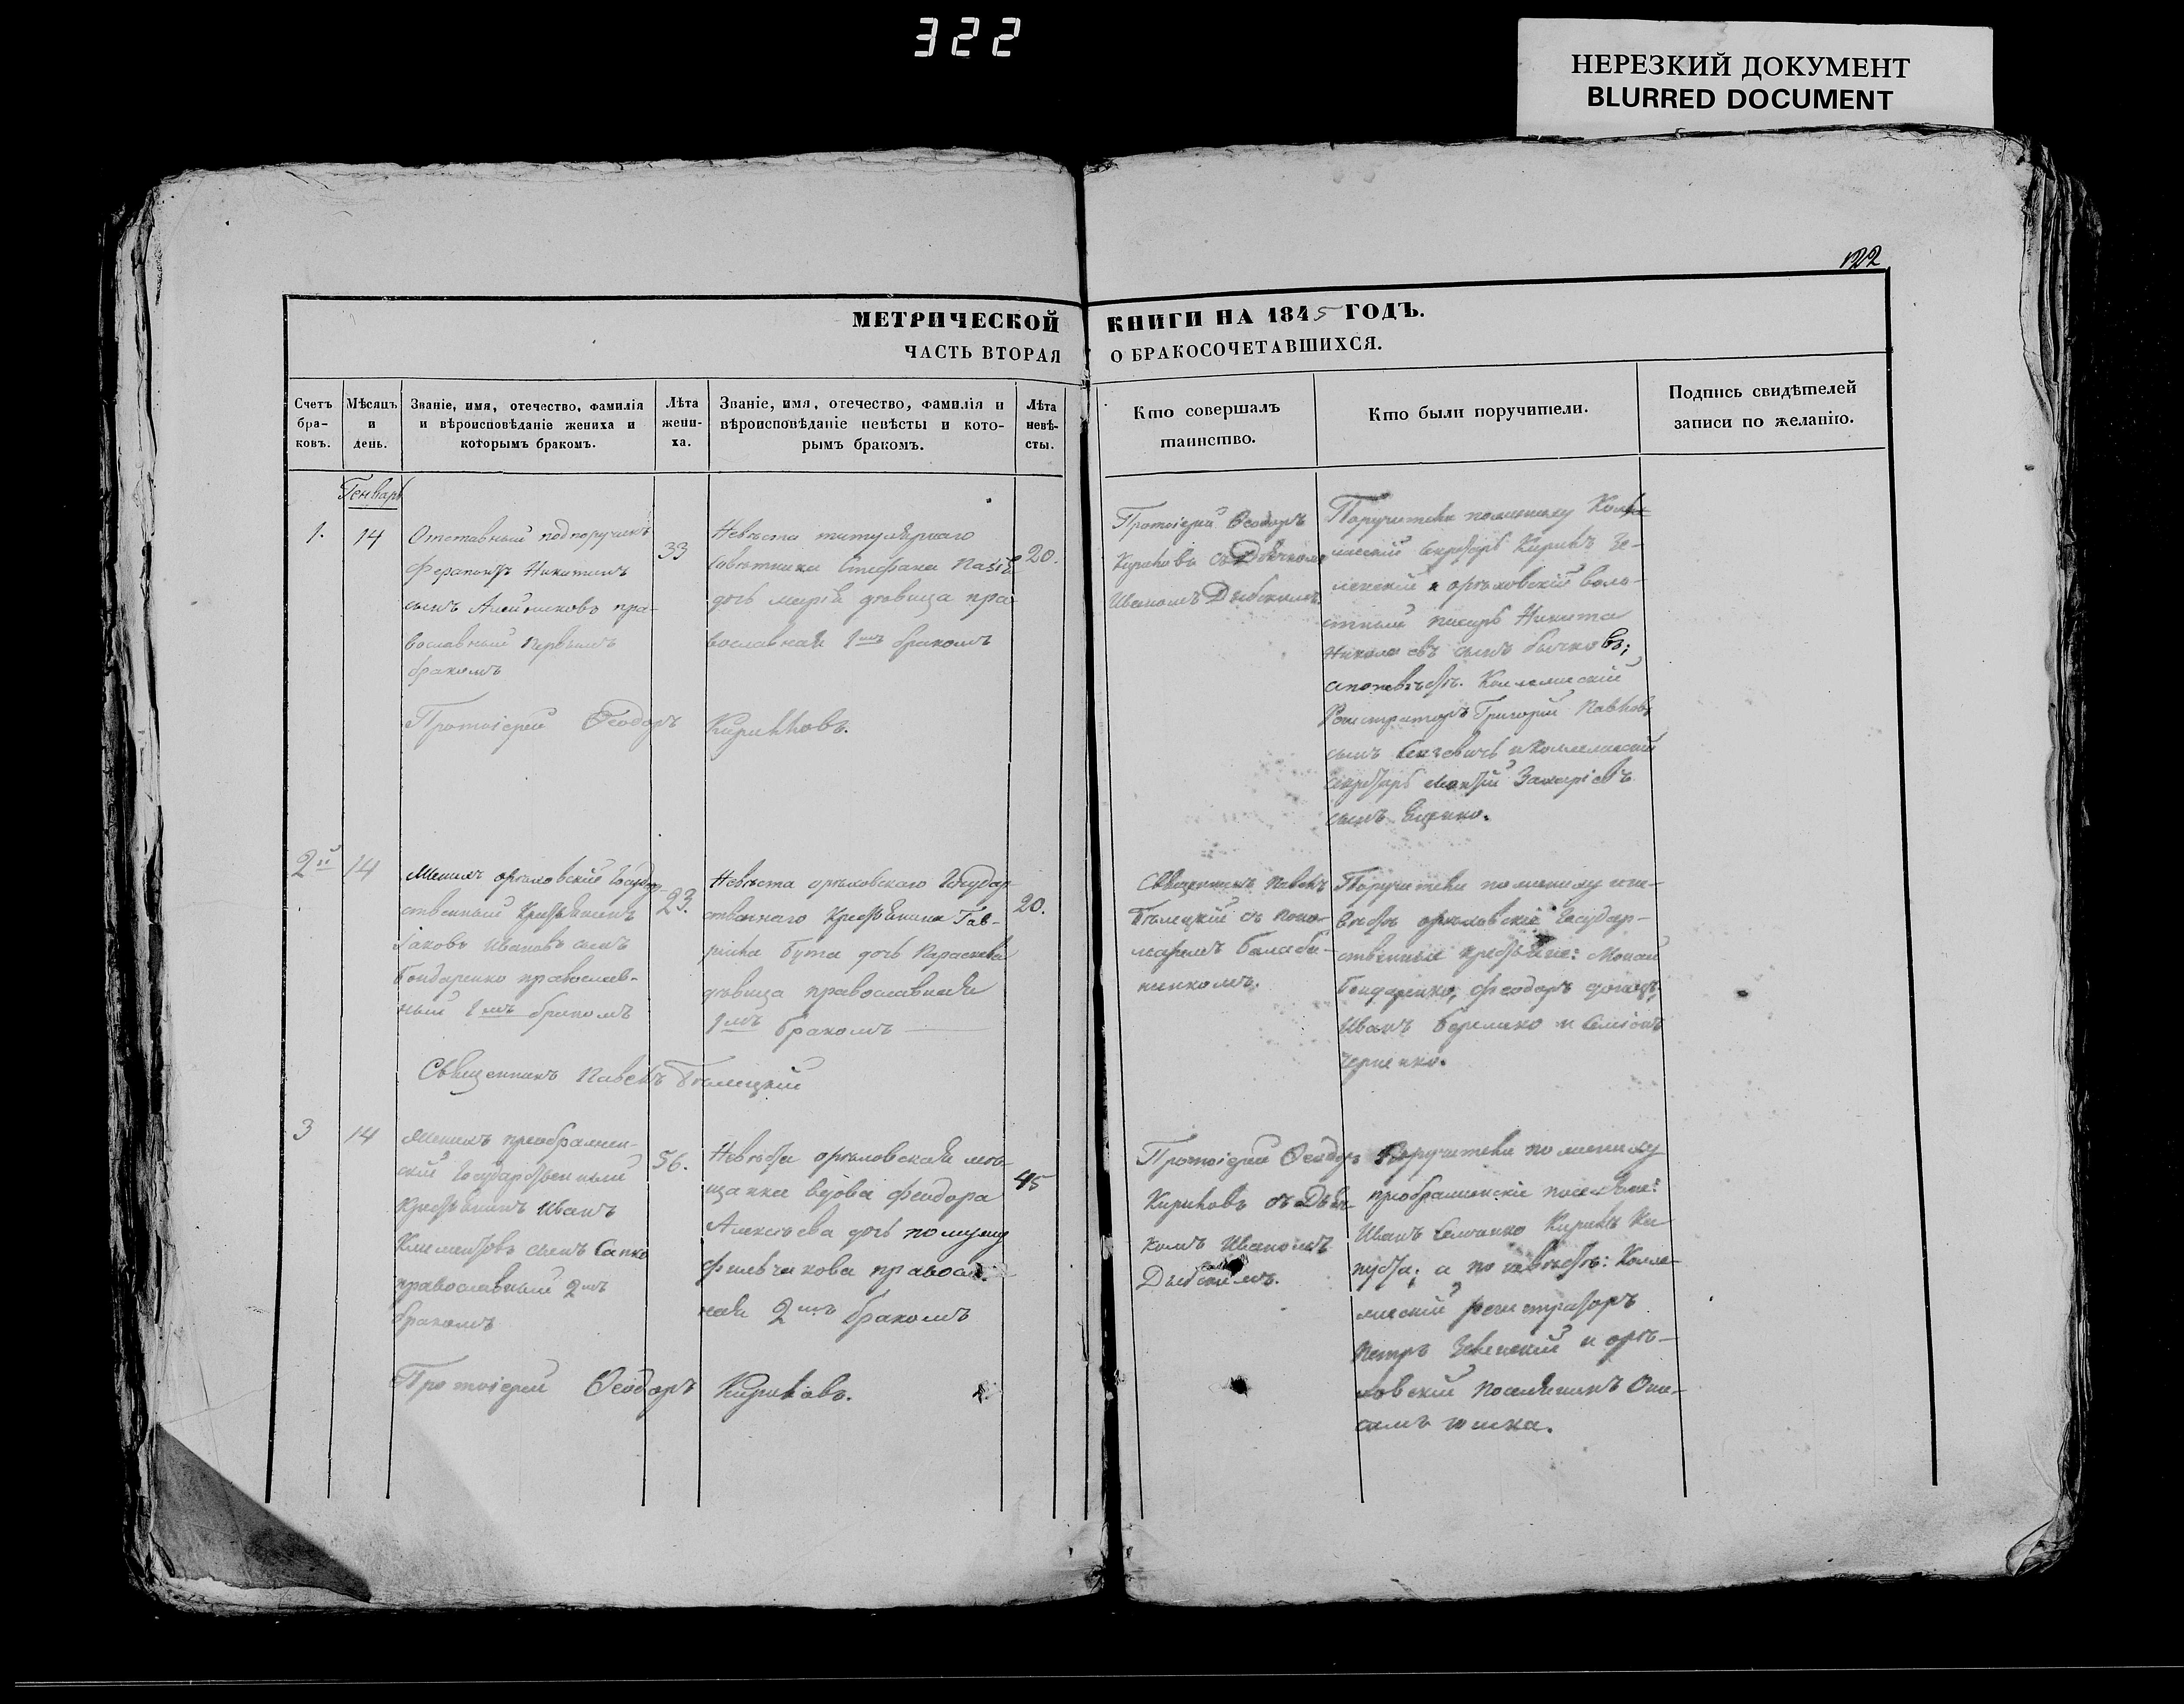 322
НЕРЕЗКИЙ ДОКУМЕНТ
BLURRED DOCUMENT
122
МЕТРИЧЕСКОЙ КНИГИ НА 1845 ГОДЪ.
ЧАСТЬ ВТОРАЯ О БРАКОСОЧЕТАВШИХСЯ.
Счетъ
бра-
ковъ.
Мѣсяцъ
и
день.
Званіе, имя, отечество, фамилія
и вѣроисповѣданіе жениха и
которымъ бракомъ.
Лѣта
жени-
ха.
Званіе, имя, отечество, фамилія и
вѣроисповѣданіе невѣсты и кото-
рымъ бракомъ.
Лѣта
невѣ-
сты.
Кто совершалъ
таинство.
Кто были поручители.
Подпись свидѣтелей
записи по желанію.
Генварь
1.
14
Отставный подпоручикъ
Ферапонтъ Никитинъ
сынъ пра-
вославный первымъ
бракомъ
33
Невѣста титулярнаго
Совѣтника Стефана
дочь Марія дѣвица пра-
вославная 1мъ бракомъ
20.
Протоіерей Ѳеодоръ
Кириловъ съ Дьячкомъ
Иваномъ
Поручители по жениху Колле
жскій Секретарь Кирилъ
и орѣховскій воло-
стный писарь Никита
Николаевъ сынъ Бычковъ;
а по невѣстѣ. Коллежскій
Регистраторъ Григорій Павловъ
сынъ и Коллежскій
секретарь Захаріевъ
сынъ
Протоіерей Ѳеодоръ Кириловъ.
2й
14
Женихъ орѣховскій Государ-
ственный Крестьянинъ
Іаковъ Ивановъ сынъ
Бондаренко православ-
ный 1мъ бракомъ
23.
Невѣста орѣховскаго Государ-
ственнаго Крестьянина Гав-
рiила Бута дочь Параскева
дѣвица православная
1мъ бракомъ
20.
Священникъ Павелъ
Бѣлецкій съ Поно-
маремъ Балаба-
ненкомъ.
Поручители по жениху и не-
вѣстѣ орѣховскіе Государ-
ственные крестьяне:
Бондаренко, Феодоръ
Иванъ и Симіонъ
Черненко.
Священникъ Павелъ Бѣлецкій
3
14
Женихъ преображен-
скій Государственный
Крестьянинъ Иванъ
Климентовъ сынъ Сапко
православный 2мъ
бракомъ
56.
Невѣста орѣховская мѣ-
щанка вдова Феодора
Алексѣева дочь по мужу
2мъ бракомъ
45
Протоіерей Ѳеодоръ
Кириловъ съ Дьяч-
комъ Иваномъ
Поручители по жениху
преображенскіе поселяне:
Иванъ Кирилъ Ка
пуста; а по невѣстѣ: Колле-
жскій регистраторъ
Петръ и орѣ-
ховскій поселянинъ
Протоіерей Ѳеодоръ Кириловъ.